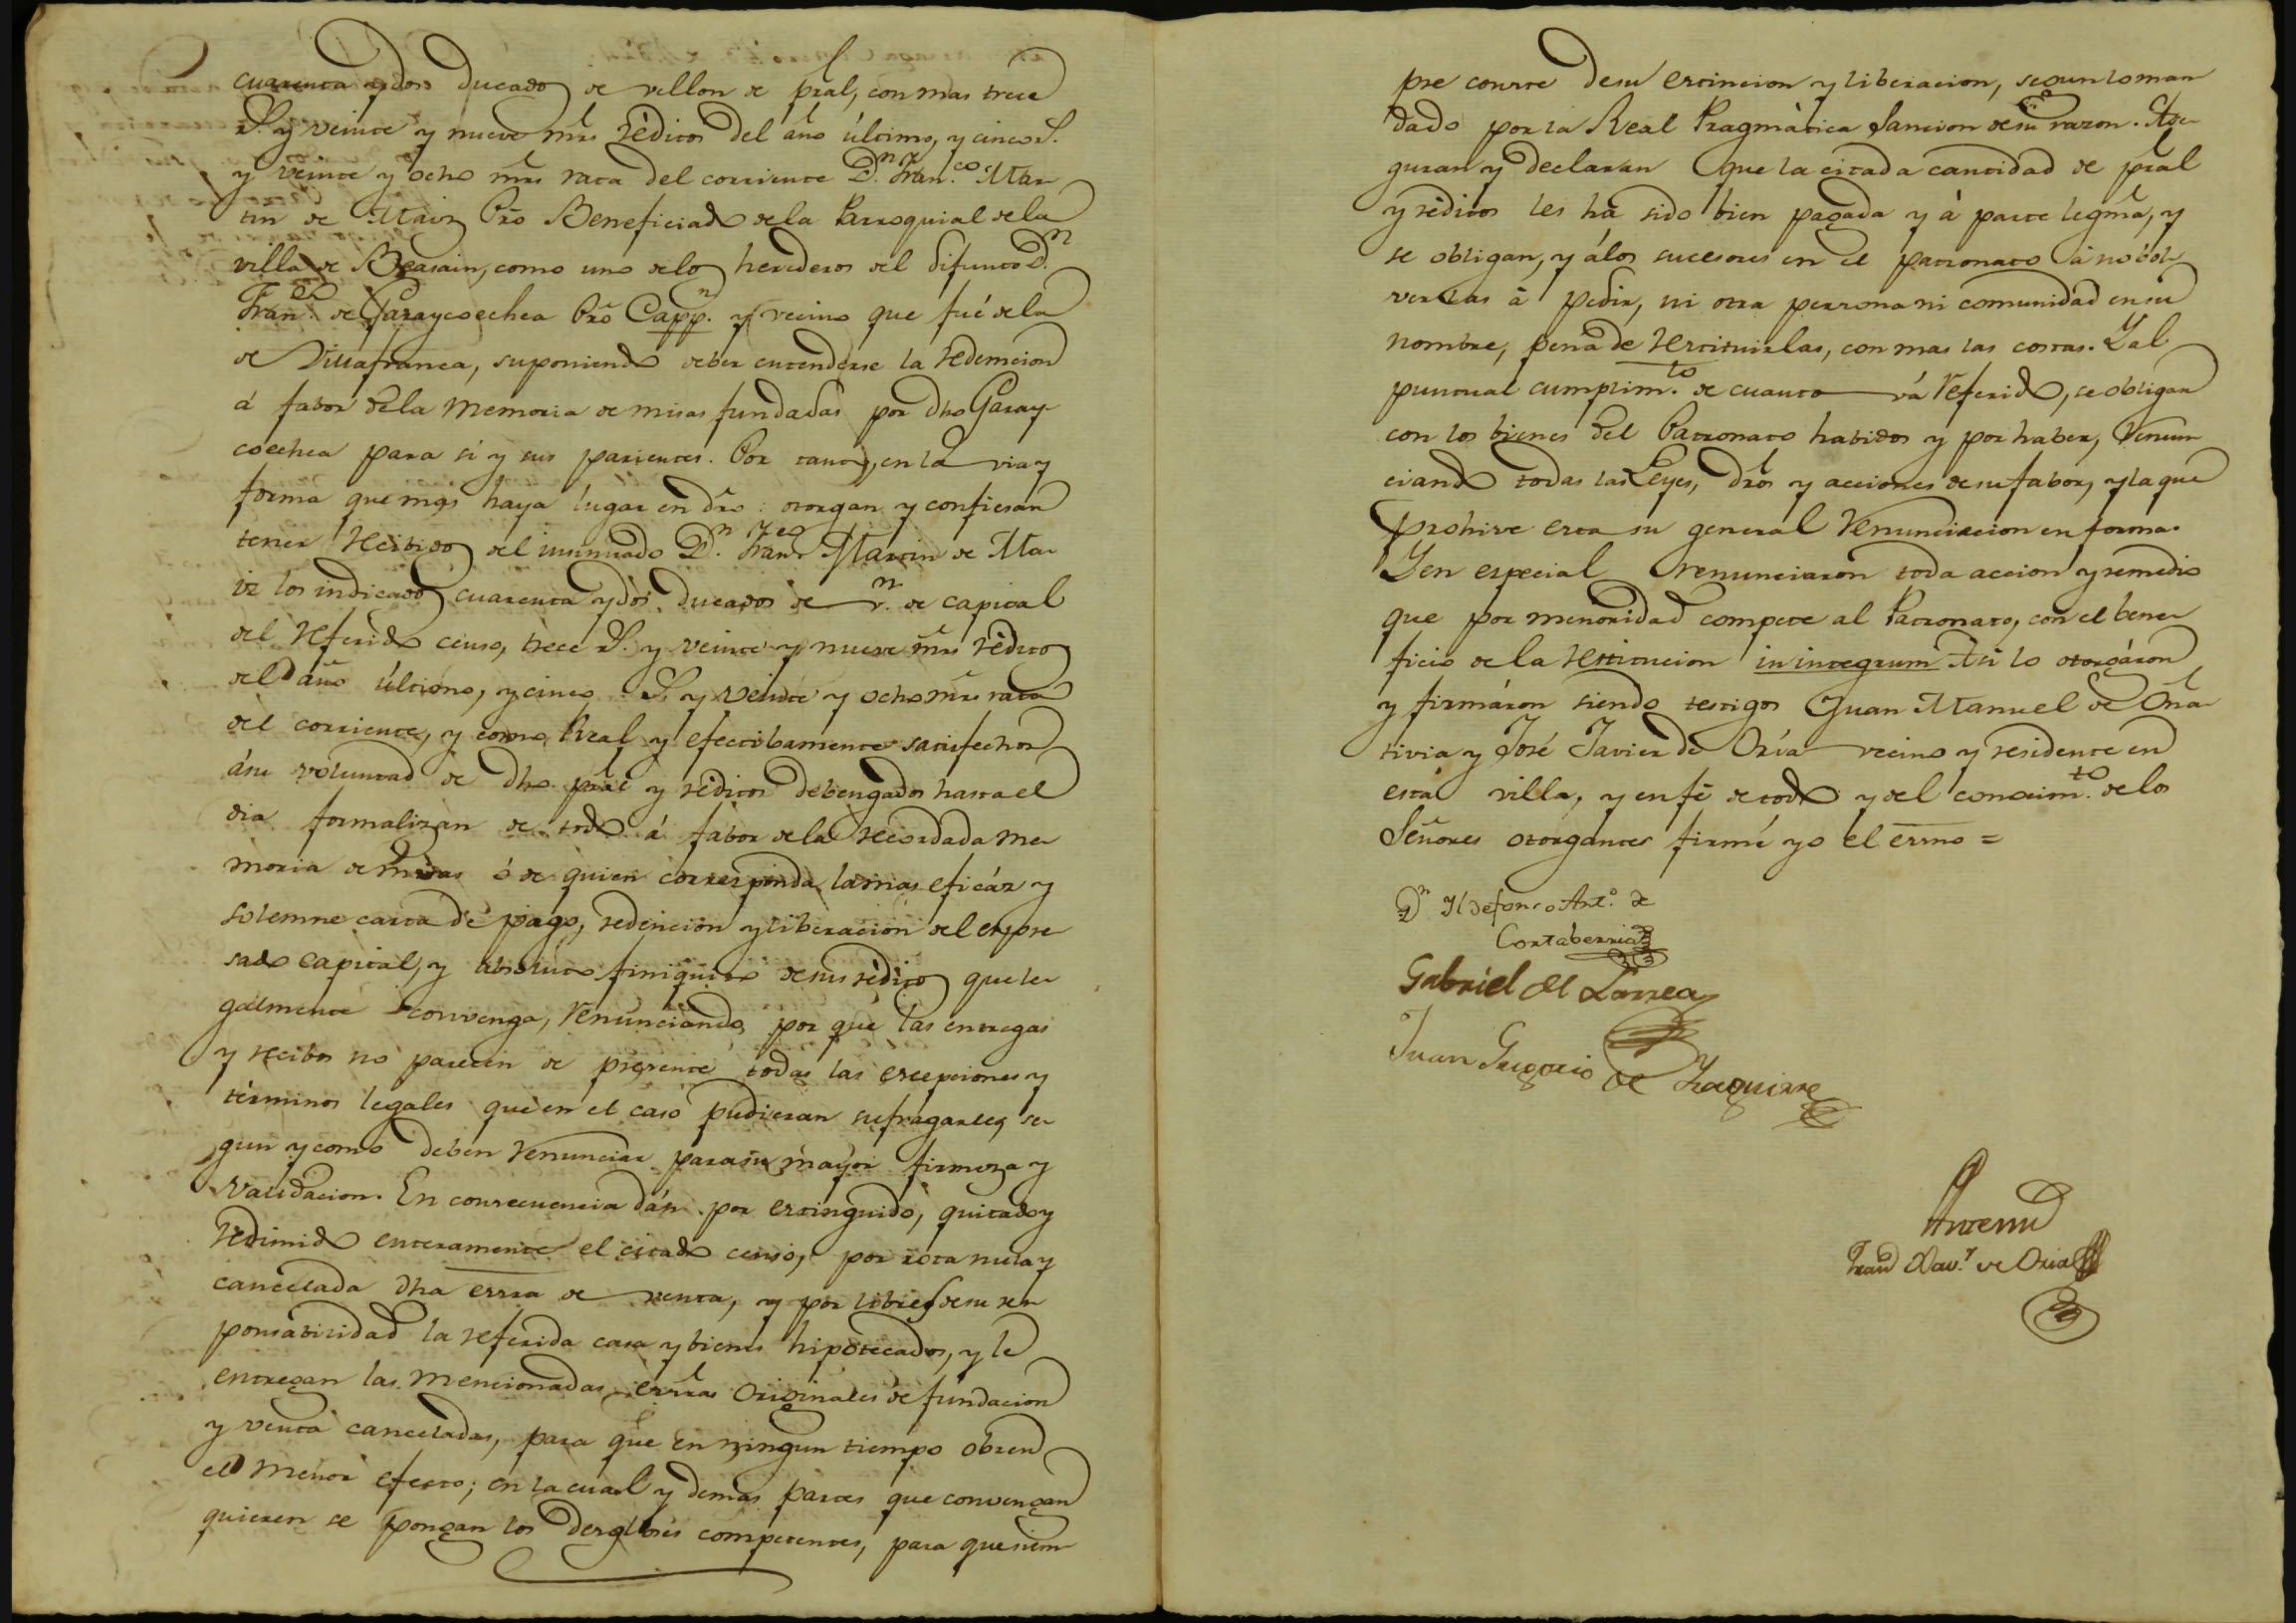 cuarenta y dos ducados de vellon de pral, con mas trece
rs. y veinte y nueve mrs réditos del año último, y cinco rs.
y veinte y ocho mrs rata del corriente Dn. Franco. Mar-
tin de Maiz Pro Beneficiado de la Parroquial de la
villa de Beasain, como uno de los herederos del difunto Dn.
Franco. de Garaycoechea Pro Cappn. y vecino que fué de la
de Villafranca, suponiendo deber entenderse la redencion
á fabor de la Memoria de misas fundadas por dho Garay-
coechea para si y sus parientes. Por tanto, en la via y
forma que mas haya lugar en dro: otorgan y confiesan
tener recibidos del insinuado Dn. Franco. Martin de Ma-
iz los indicados cuarenta y dos ducados de vn. de capital
del referido censo, trece rs. y veinte y nueve mrs réditos
del año último, y cinco rs. y veinte y ocho mrs rata
del corriente, y como Real y efectibamente satisfechos
á su voluntad de dho pral y réditos debengados hasta el
dia formalizan de todo á fabor de la recordada me-
moria de misas ó de quien corresponda la mas eficáz y
solemne carta de pago, redencion y liberacion del expre-
sado capital, y absoluto finiquito de sus réditos que le-
galmente convenga, renunciando por que las entregas
y recibos no parecen de presente todas las excepciones y
términos legales que en el caso pudieran sufragarles, se-
gun y como deben renunciar para su mayor firmeza y
validacion. En consecuencia dán por extinguido, quitado y
redimido enteramente el citado censo, por rota nula y
cancelada dha essra de venta, y por libres de su res-
ponsabilidad la referida casa y bienes hipotecados, y le
entregan las mencionadas essras originales de fundacion
y venta canceladas, para que en ningun tiempo obren
el menor efecto; en la cual y demas partes que convengan
quieren se pongan los desgloses competentes, para que siem-
pre conste de su extincion y liberacion, segun lo man-
dado por la Real Pragmática Sancion de su razon. Ase-
guran y declaran que la citada cantidad de pral
y réditos les ha sido bien pagada y á parte legma, y
se obligan, y á los sucesores en el patronato á no bol-
verlas á pedir, ni otra persona ni comunidad en su
nombre, pena de restituirlas, con mas las costas. Y al
puntual cumplimto. de cuanto vá referido, se obligan
con los bienes del Patronato habidos y por haber, renun-
ciando todas las Leyes, dros y acciones de su fabor, y la que
prohive esta su general renunciacion en forma.
Y en especial renunciaron toda accion y remedio
que por menoridad compete al Patronato, con el bene-
ficio de la restitucion in integrum. Asi lo otorgáron
y firmáron siendo testigos Juan Manuel de Oña-
tivia y José Javier de Oria vecino y residente en
esta villa, y en fé de todo y del conocimto. de los
Señores otorgantes firmé yo el essno =
Dn Yldefonso Anto. de
Cortaberria
Gabriel de Larrea
Juan Gregorio de Yraguirre
Antemi
Xavr. de Oria